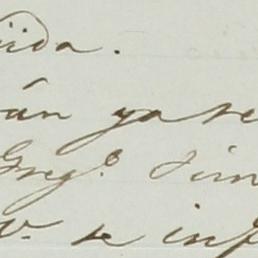 üida.
án ya se
Greg.º Jim
V. se inf